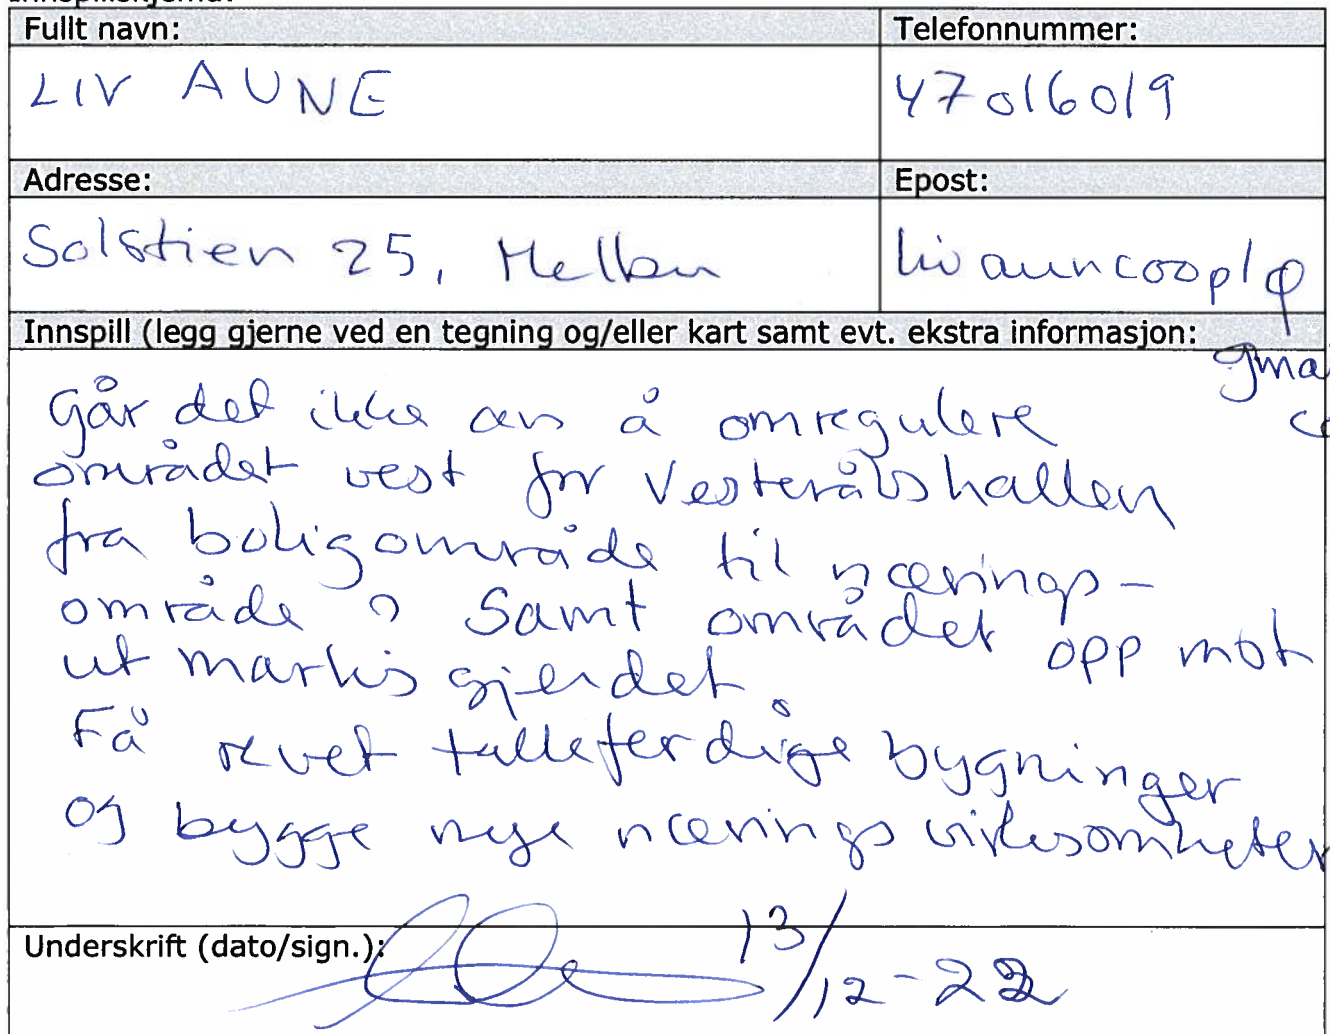 Fullt navn:
Telefonnummer:
LIV AUNE
47016019
Adresse:
Epost:
Solstien 25, Melbu
livauncoop1@
gma
co
Innspill (legg gjerne ved en tegning og/eller kart samt evt. ekstra informasjon:
Går det ikke an å omregulere
området vest for Vesterålshallen
fra boligområde til nærings-
område? Samt området opp mot
utmarksgjerdet.
Få revet falleferdige bygninger
og bygge nye næringsvirksomheter
Underskrift (dato/sign.):
13/12-22